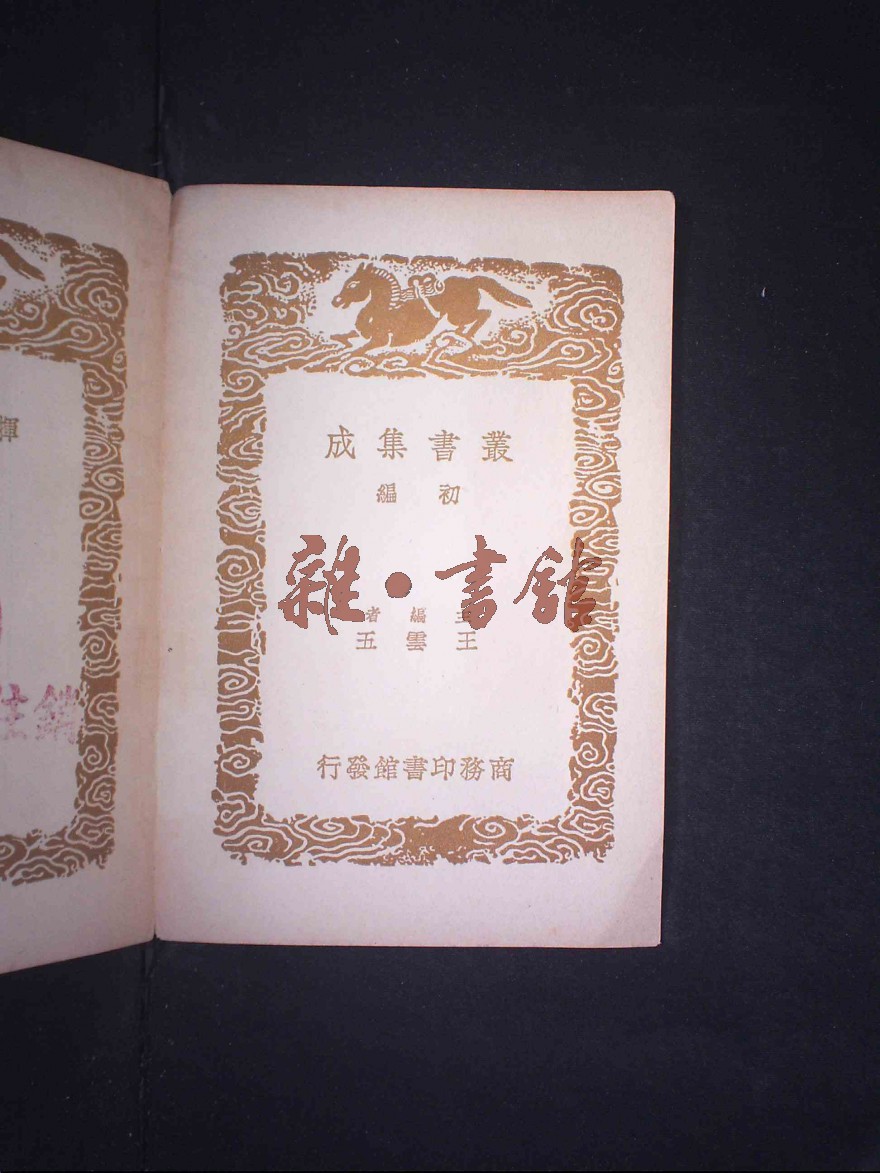 叢書集成
初編
雜·書館
主編者
王雲五
商務印書館發行
輝